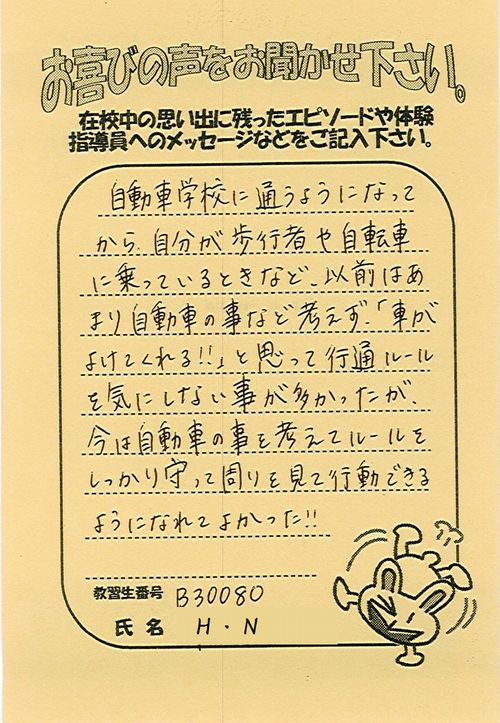 お喜びの声をお聞かせ下さい。
在校中の思い出に残ったエピソードや体験
指導員へのメッセージなどをご記入下さい。
自動車学校に通うようになって
から、自分が歩行者や自転車
に乗っているときなど、以前はあ
まり自動車の事など考えず、「車が
よけてくれる!!」と思って行通ルール
を気にしない事が多かったが、
今は自動車の事を考えてルールを
しっかり守って周りを見て行動できる
ようになれてよかった!!
教習生番号 B30080
氏名 H・N